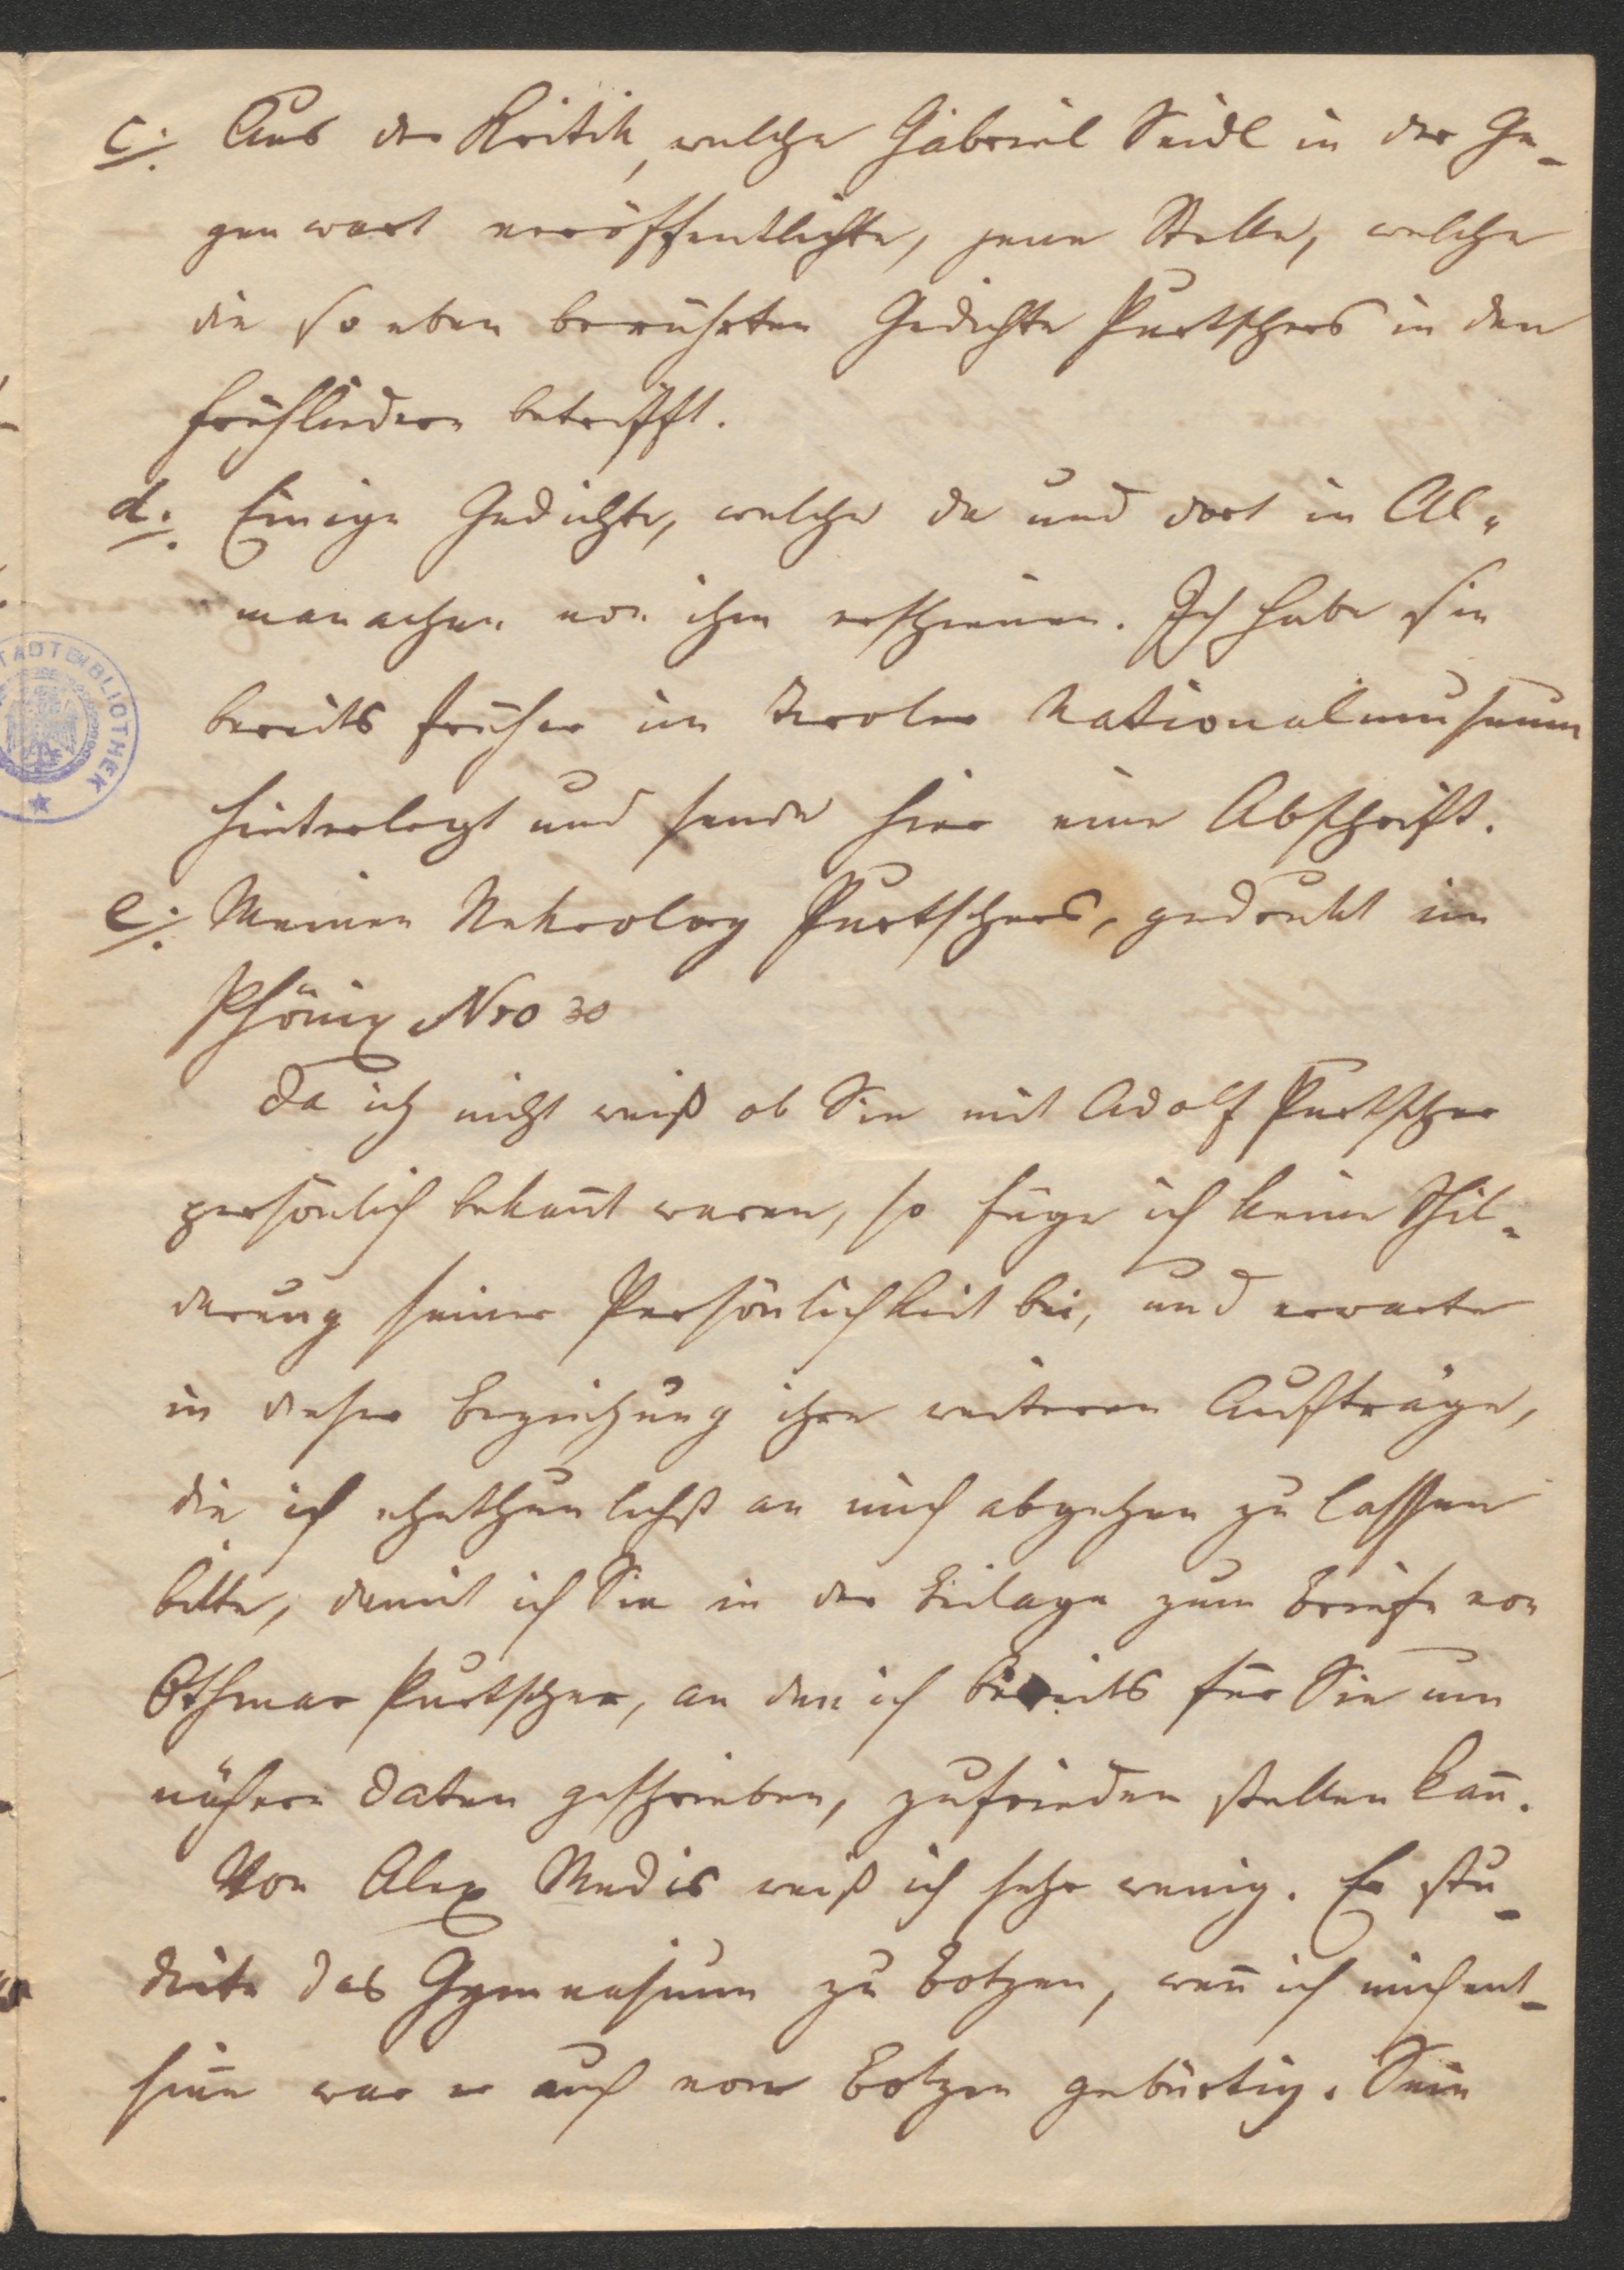 c. Aus der Kritik, welche Gabriel Seidl in der Ge-
genwart veröffentlichte, jene Stelle, welche
die so eben berührten Gedichte Purtschers in den
Frühliedern betrifft.
d. Einige Gedichte, welche da und dort in Al-
manachen von ihm erschienen. Ich habe sie
bereits früher im Tyroler Nationalmuseum
hinterlegt und sende hier eine Abschrift.
e. Meinen Nekrolog Purtschers, gedruckt im
Phönix Nro 30
Da ich nicht weiß ob Sie mit Adolf Purtscher
persönlich bekant waren, so füge ich keine Schil-
derung seiner Persönlichkeit bei, und erwarte
in dieser Beziehung ihre weiteren Aufträge,
die ich ehethunlichst an mich abgehen zu lassen
bitte, damit ich Sie in der Beilage zum Briefe von
Othmar Purtscher, an den ich bereits für Sie um
nähere Daten geschrieben, zufrieden stellen kan.
Von Alex Medis weiß ich sehr wenig. Er stu-
dirte das Gymnasium zu Botzen, wen ich mich ent-
sine war er auch von Botzen gebürtig. Sein
STADTBIBLIOTHEK